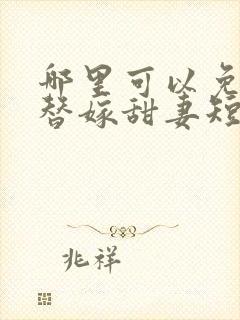 哪里可以免
替嫁甜妻短
兆祥